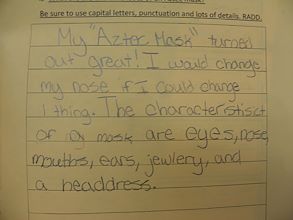 Be sure to use capital letters, punctuation and lots of details. RADD.
My "Aztec Mask" turned
out great! I would change
my nose if I could change
1 thing. The characteristisict
of my mask are eyes, nose,
mouths, ears, jewlery, and
a headdress.